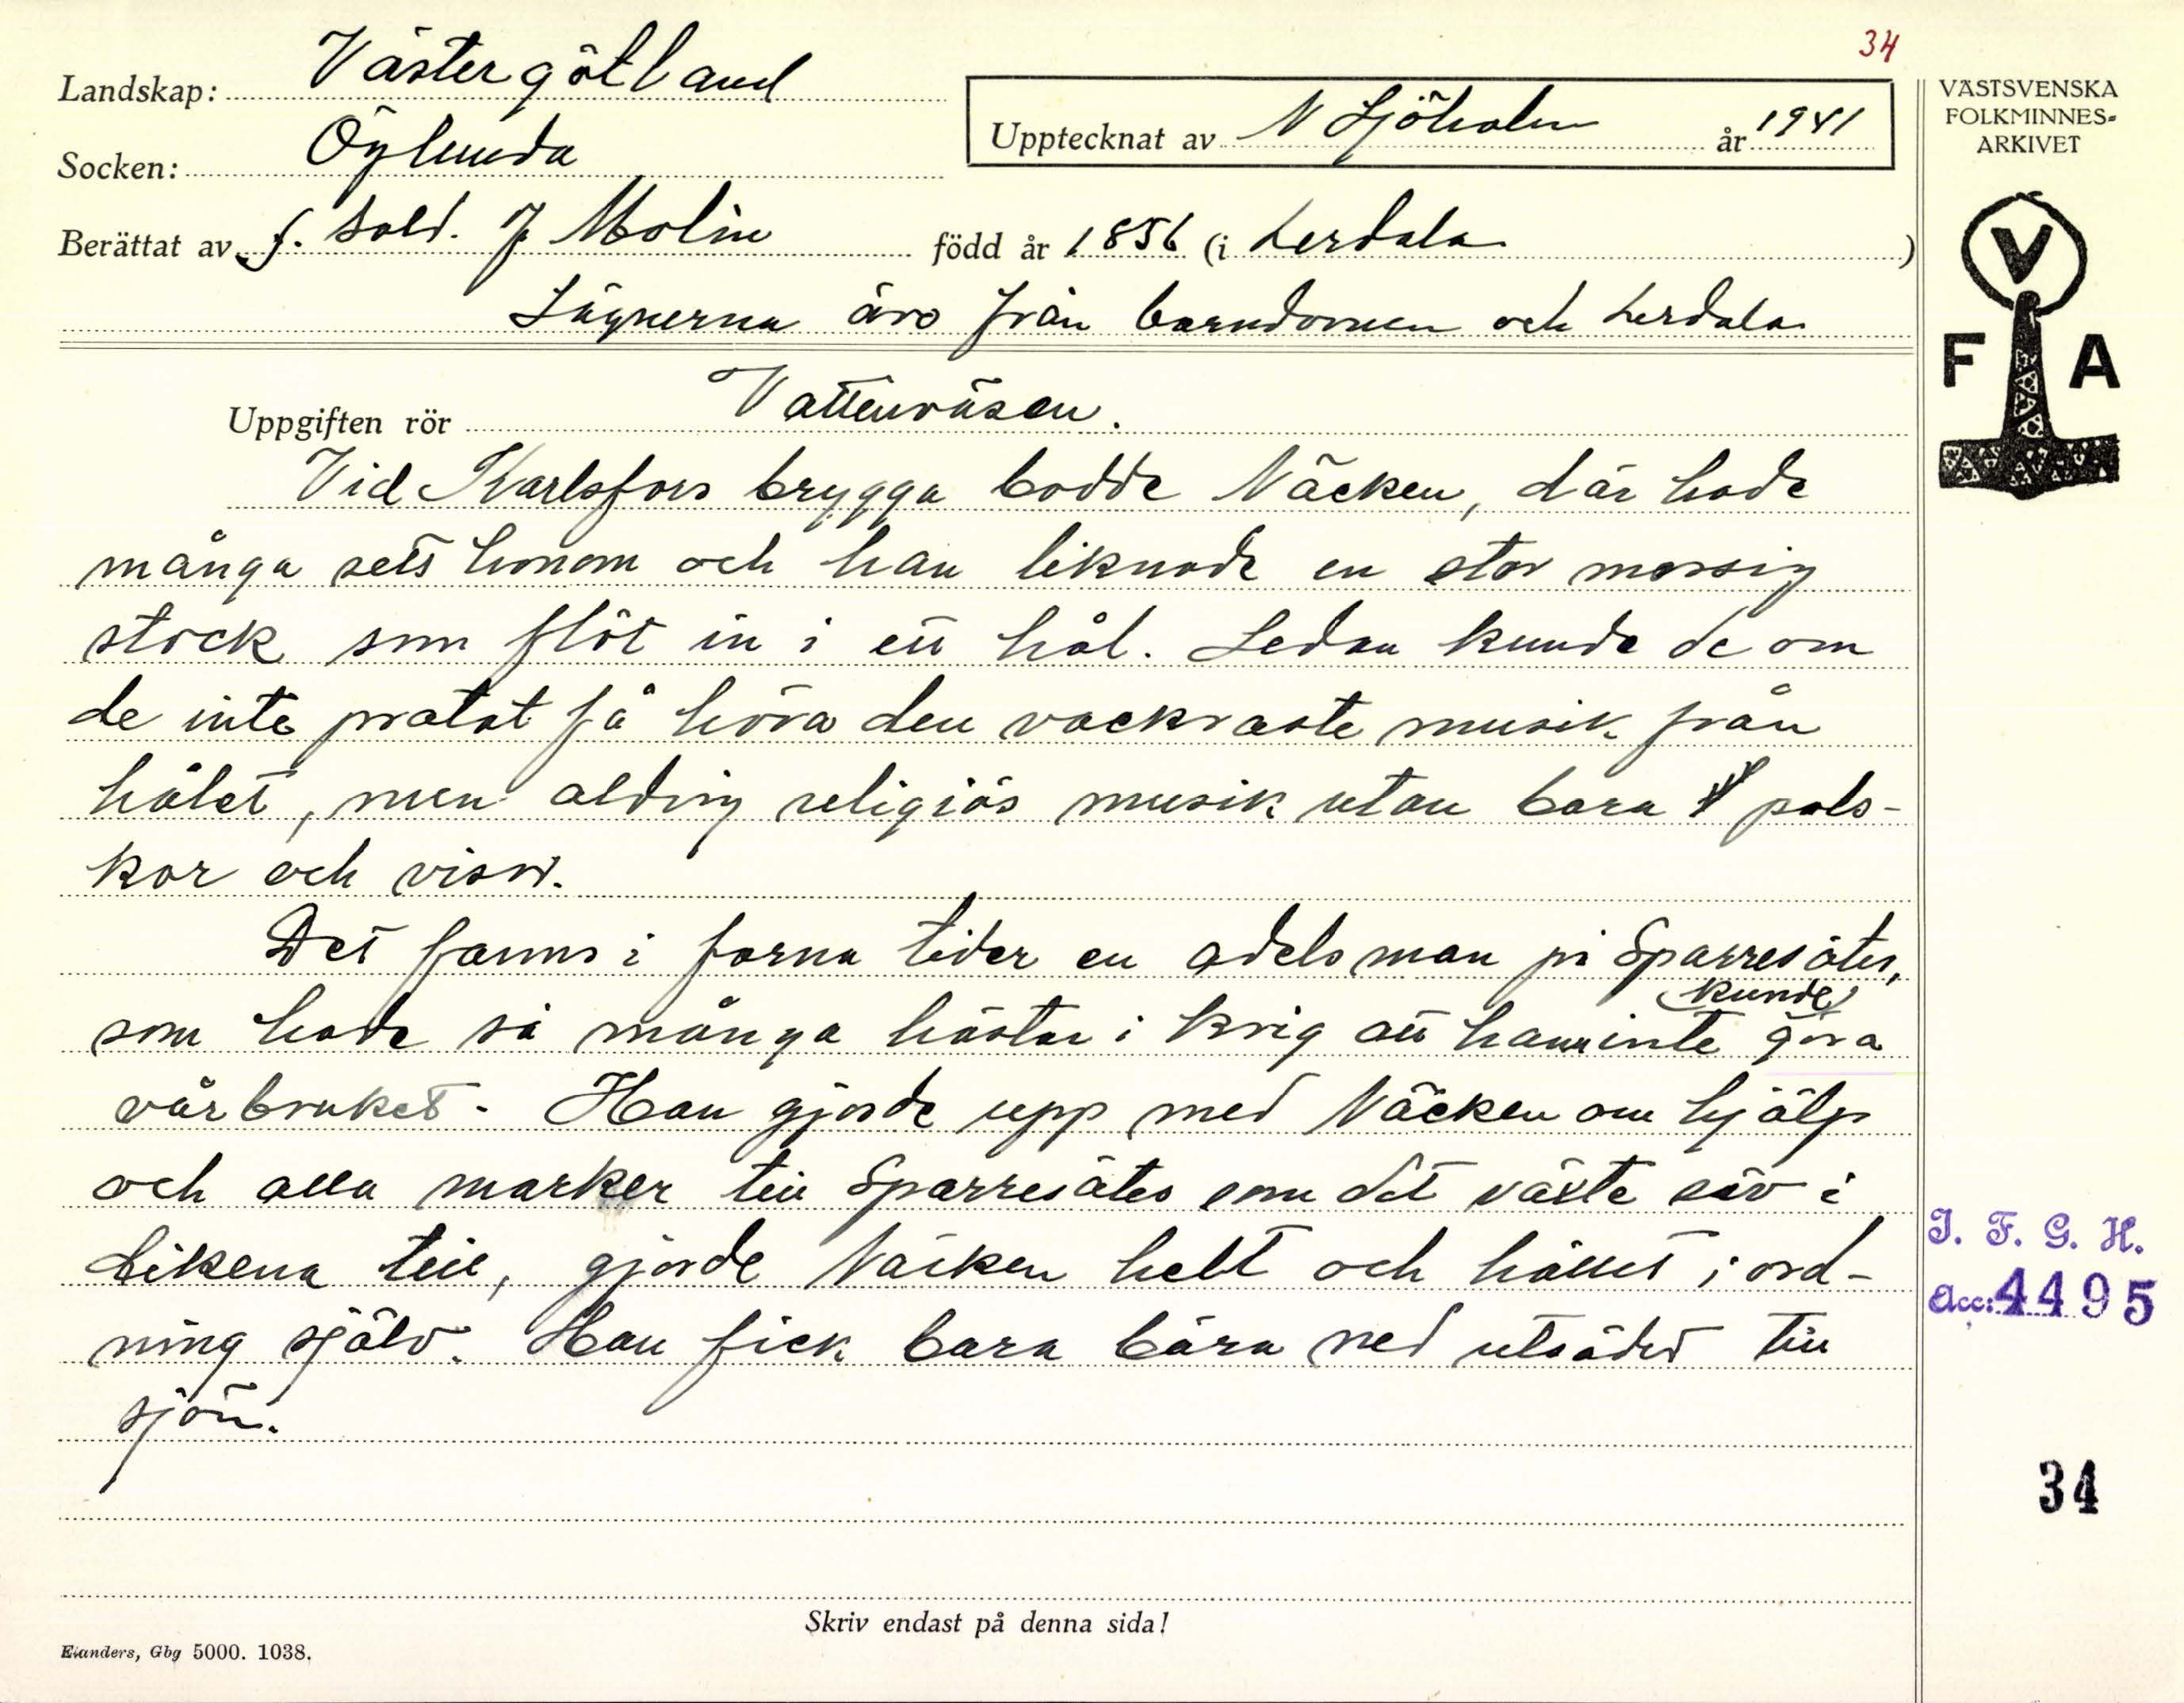 34
Landskap: Västergötland
Socken: Öglunda
Upptecknat av N Sjöholm år 1941
VÄSTSVENSKA
FOLKMINNES-
ARKIVET
Berättat av f. sold. J Molin född år 1856 (i Lerdala )
Sägnerna äro från barndomen och Lerdala
V
F A
Uppgiften rör Vattenväsen.
Vid Karlsfors brygga bodde Näcken, där hade
många sett honom och han liknade en stor mossig
stock som flöt in i ett hål. Sedan kunde de om
de inte pratat få höra den vackraste musik från
hålet, men aldrig religiös musik utan bara pols-
kor och visor.
Det fanns i forna tider en adelsman på Sparresäter,
som hade så många hästar i krig att han inte kunde göra
vårbruket. Han gjorde upp med Näcken om hjälp
och alla marker till Sparresäter som det växte säv i
dikena till, gjorde Näcken helt och hållet i ord-
ning själv. Han fick bara bära ned utsädet till
sjön.
I. F. G. H.
Acc: 4495
34
Skriv endast på denna sida!
Elanders, Gbg 5000. 1038.